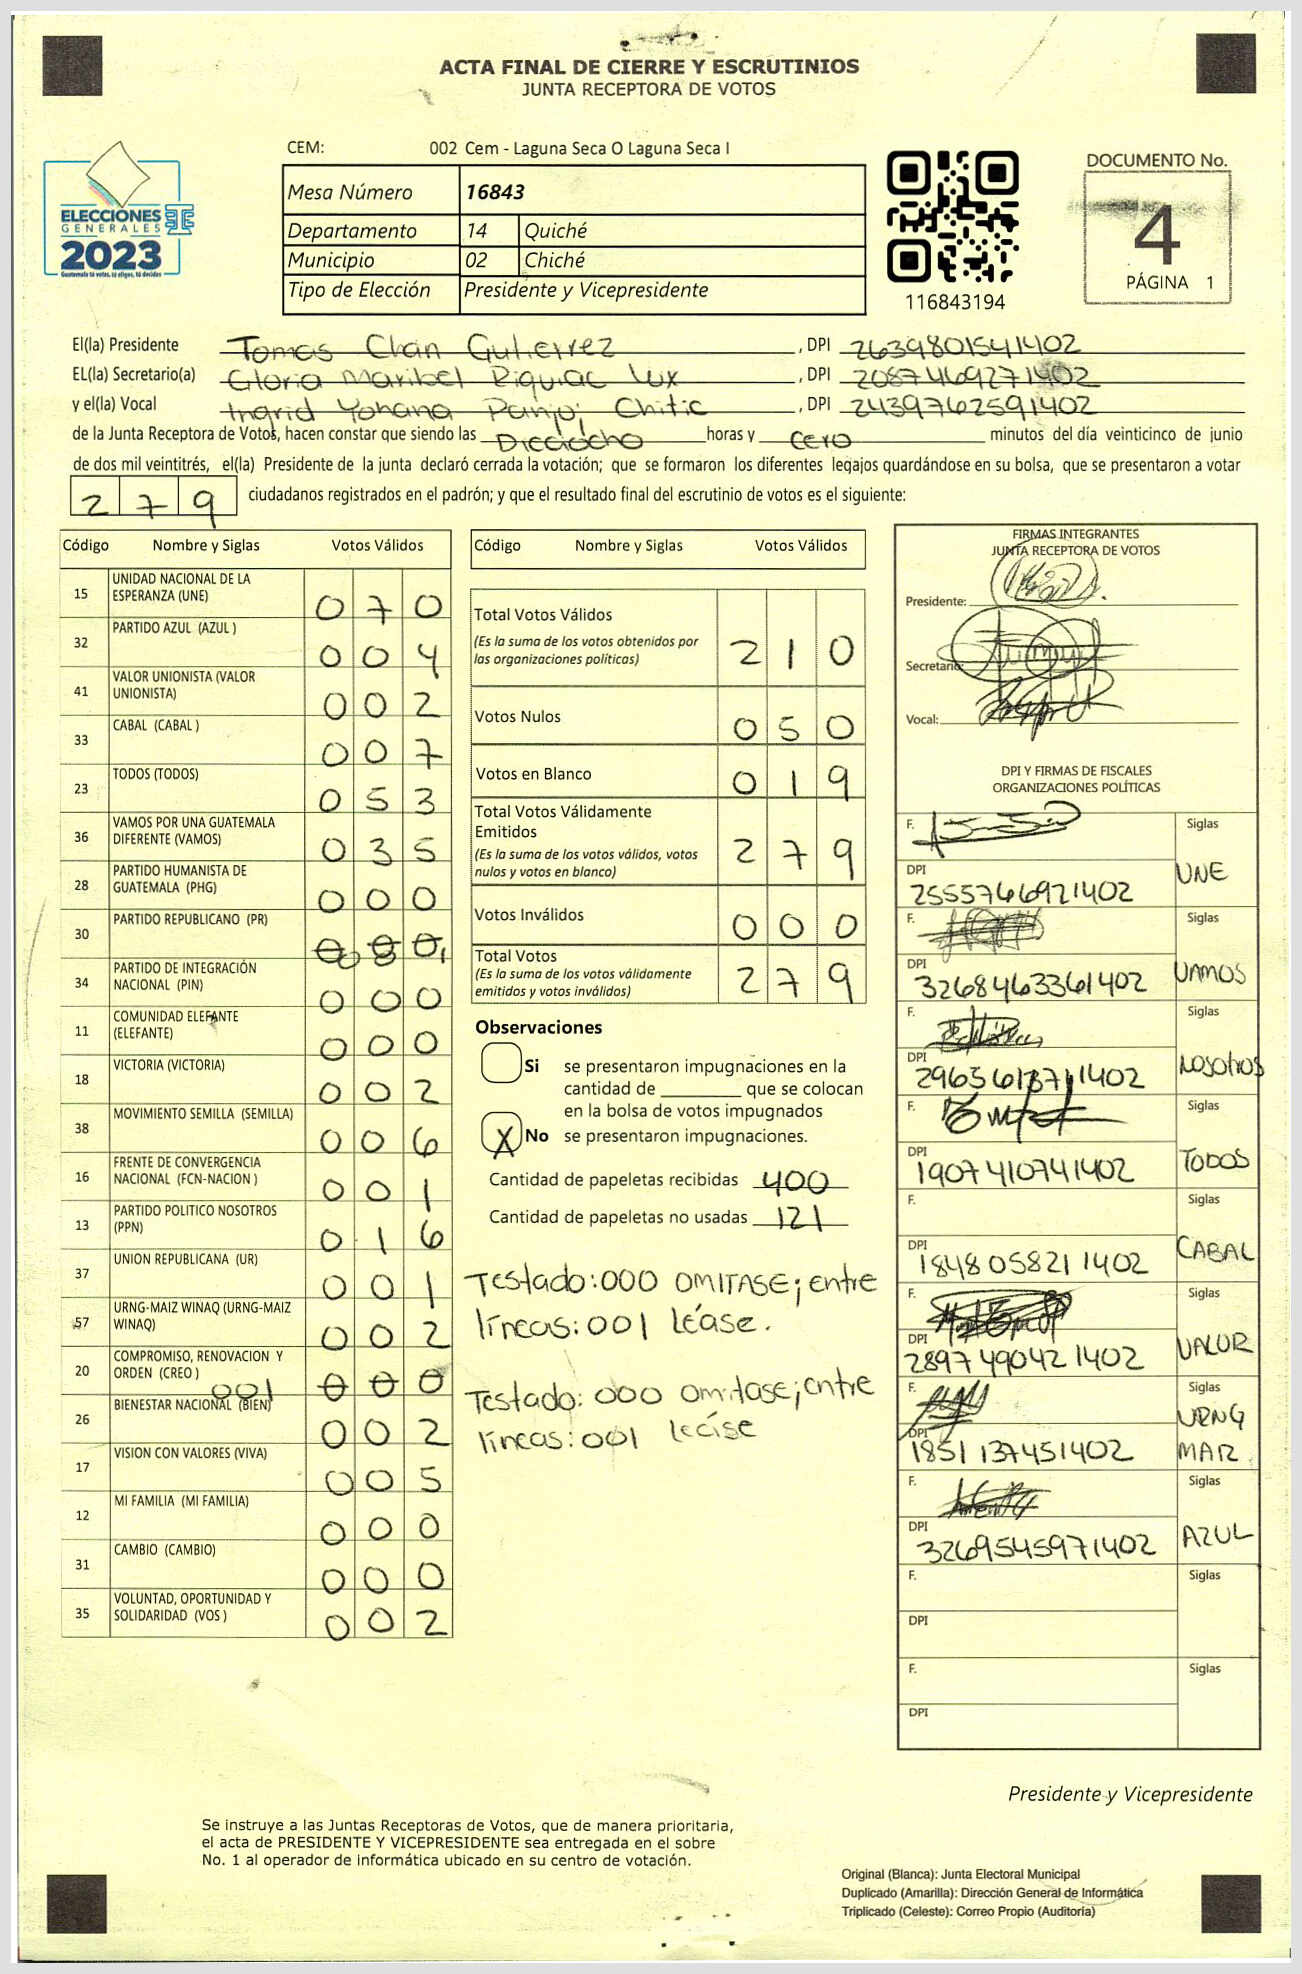 ACTA FINAL DE CIERRE Y ESCRUTINIOS
JUNTA RECEPTORA DE VOTOS
CEM: 002 Cem - Laguna Seca O Laguna Seca I
ELECCIONES
GENERALES
2023
Guatemala tú votas, tú eliges, tú decides
Mesa Número 16843
Departamento 14 Quiché
Municipio 02 Chiché
Tipo de Elección Presidente y Vicepresidente
116843194
DOCUMENTO No.
4
PÁGINA 1
El(la) Presidente Tomas Chan Gutierrez, DPI 2639801541402
EL(la) Secretario(a) Gloria Maribel Riquiac Lux, DPI 2087469271402
y el(la) Vocal Ingrid Yohana Panjoj Chitic, DPI 2439762591402
de la Junta Receptora de Votos, hacen constar que siendo las Dieciocho horas y cero minutos del día veinticinco de junio
de dos mil veintitrés, el(la) Presidente de la junta declaró cerrada la votación; que se formaron los diferentes legajos guardándose en su bolsa, que se presentaron a votar
279 ciudadanos registrados en el padrón; y que el resultado final del escrutinio de votos es el siguiente:
Código Nombre y Siglas Votos Válidos
15 UNIDAD NACIONAL DE LA ESPERANZA (UNE) 070
32 PARTIDO AZUL (AZUL ) 004
41 VALOR UNIONISTA (VALOR UNIONISTA) 002
33 CABAL (CABAL ) 007
23 TODOS (TODOS) 053
36 VAMOS POR UNA GUATEMALA DIFERENTE (VAMOS) 035
28 PARTIDO HUMANISTA DE GUATEMALA (PHG) 000
30 PARTIDO REPUBLICANO (PR) 000 001
34 PARTIDO DE INTEGRACIÓN NACIONAL (PIN) 000
11 COMUNIDAD ELEFANTE (ELEFANTE) 000
18 VICTORIA (VICTORIA) 002
38 MOVIMIENTO SEMILLA (SEMILLA) 006
16 FRENTE DE CONVERGENCIA NACIONAL (FCN-NACION ) 001
13 PARTIDO POLITICO NOSOTROS (PPN) 016
37 UNION REPUBLICANA (UR) 001
57 URNG-MAIZ WINAQ (URNG-MAIZ WINAQ) 002
20 COMPROMISO, RENOVACION Y ORDEN (CREO ) 001 000
26 BIENESTAR NACIONAL (BIEN) 002
17 VISION CON VALORES (VIVA) 005
12 MI FAMILIA (MI FAMILIA) 000
31 CAMBIO (CAMBIO) 000
35 VOLUNTAD, OPORTUNIDAD Y SOLIDARIDAD (VOS ) 002
Código Nombre y Siglas Votos Válidos
Total Votos Válidos 210
(Es la suma de los votos obtenidos por
las organizaciones políticas)
Votos Nulos 050
Votos en Blanco 019
Total Votos Válidamente
Emitidos 279
(Es la suma de los votos válidos, votos
nulos y votos en blanco)
Votos Inválidos 000
Total Votos 279
(Es la suma de los votos válidamente
emitidos y votos inválidos)
Observaciones
Si se presentaron impugnaciones en la
cantidad de ________ que se colocan
en la bolsa de votos impugnados
X No se presentaron impugnaciones.
Cantidad de papeletas recibidas 400
Cantidad de papeletas no usadas 121
Testado: 000 OMITASE; entre
líneas: 001 léase.
Testado: 000 omitase; entre
líneas: 001 leáse
FIRMAS INTEGRANTES
JUNTA RECEPTORA DE VOTOS
Presidente:
Secretario:
Vocal:
DPI Y FIRMAS DE FISCALES
ORGANIZACIONES POLÍTICAS
F. Siglas
DPI 2555766921402 UNE
F. Siglas
DPI 3268463361402 VAMOS
F. Siglas
DPI 1402 NOSOTROS
F. Siglas
DPI 1907410741402 TODOS
F. Siglas
DPI 1848058211402 CABAL
F. Siglas
DPI 2897490421402 VALOR
F. Siglas
DPI 1851137451402 URNG MAIZ
F. Siglas
DPI 3269545971402 AZUL
F. Siglas
DPI
F. Siglas
DPI
Presidente y Vicepresidente
Se instruye a las Juntas Receptoras de Votos, que de manera prioritaria,
el acta de PRESIDENTE Y VICEPRESIDENTE sea entregada en el sobre
No. 1 al operador de informática ubicado en su centro de votación.
Original (Blanca): Junta Electoral Municipal
Duplicado (Amarilla): Dirección General de Informática
Triplicado (Celeste): Correo Propio (Auditoría)